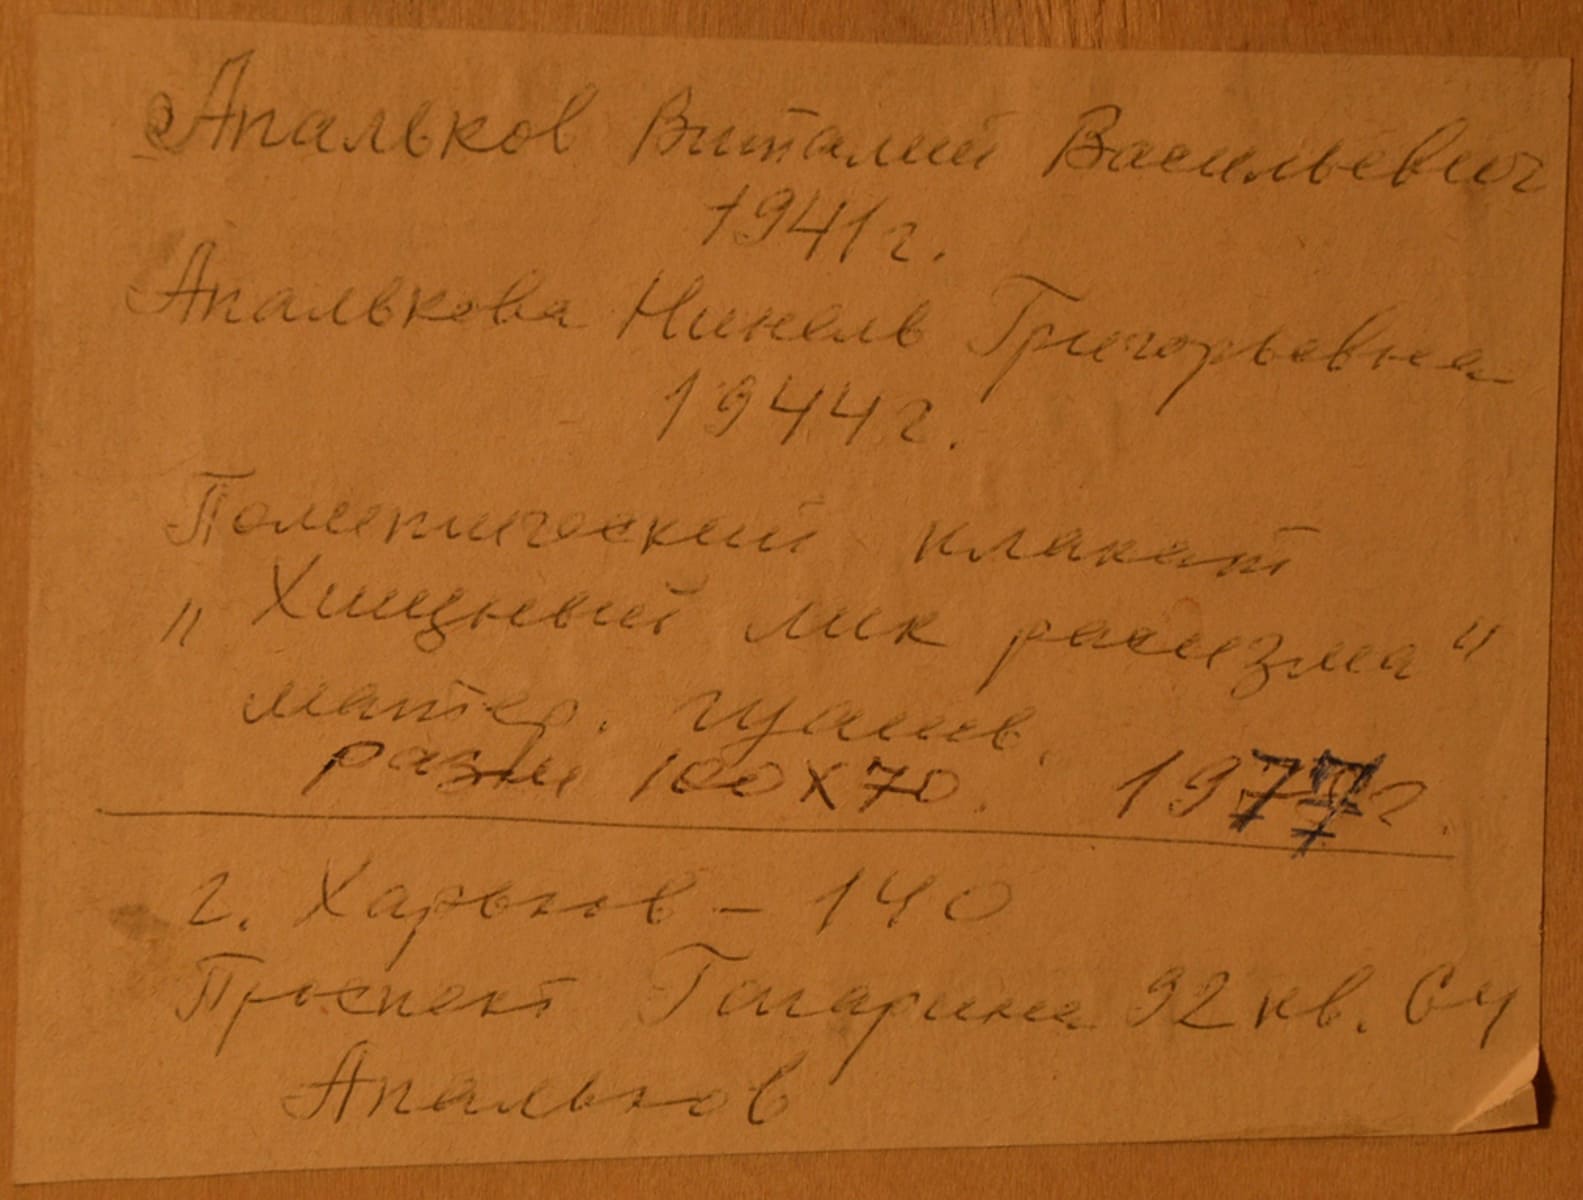 Апальков Виталий Васильевич
1941г.
Апалькова Нинель Григорьевна
1944г.
Политический плакат
„Хищный лик расизма"
матер. гуашь.
разм 100х70. 1977г.
г. Харьков - 140
Проспект Гагарина 92 кв. 64
Апальков